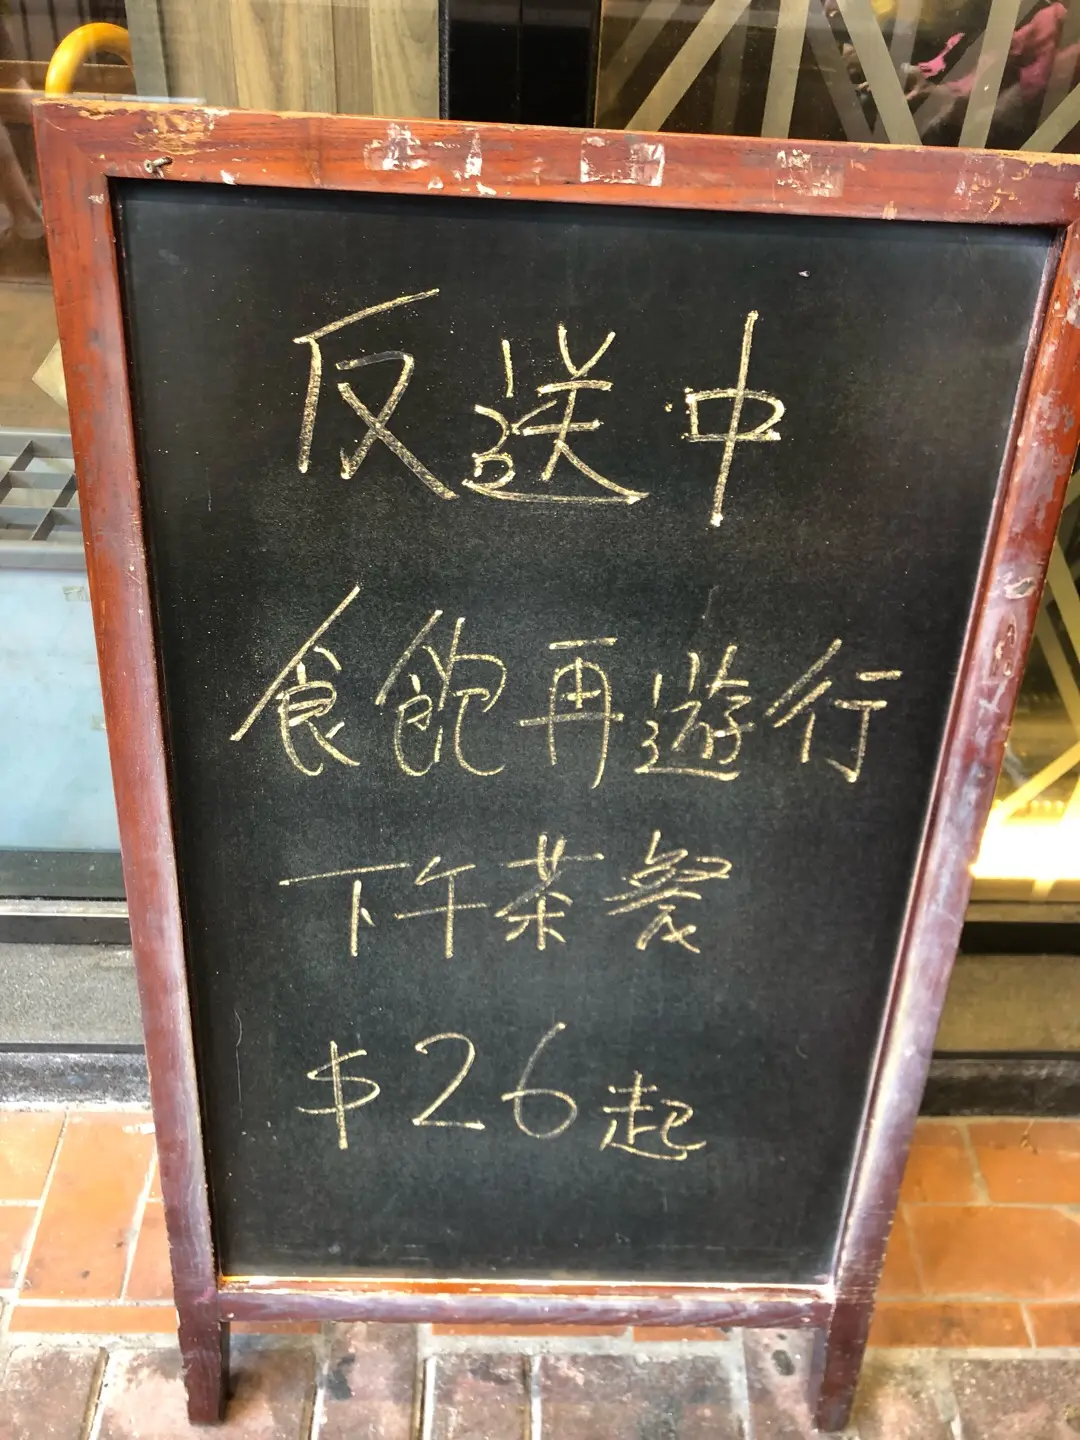 反送中
食飽再遊行
下午茶餐
$26起